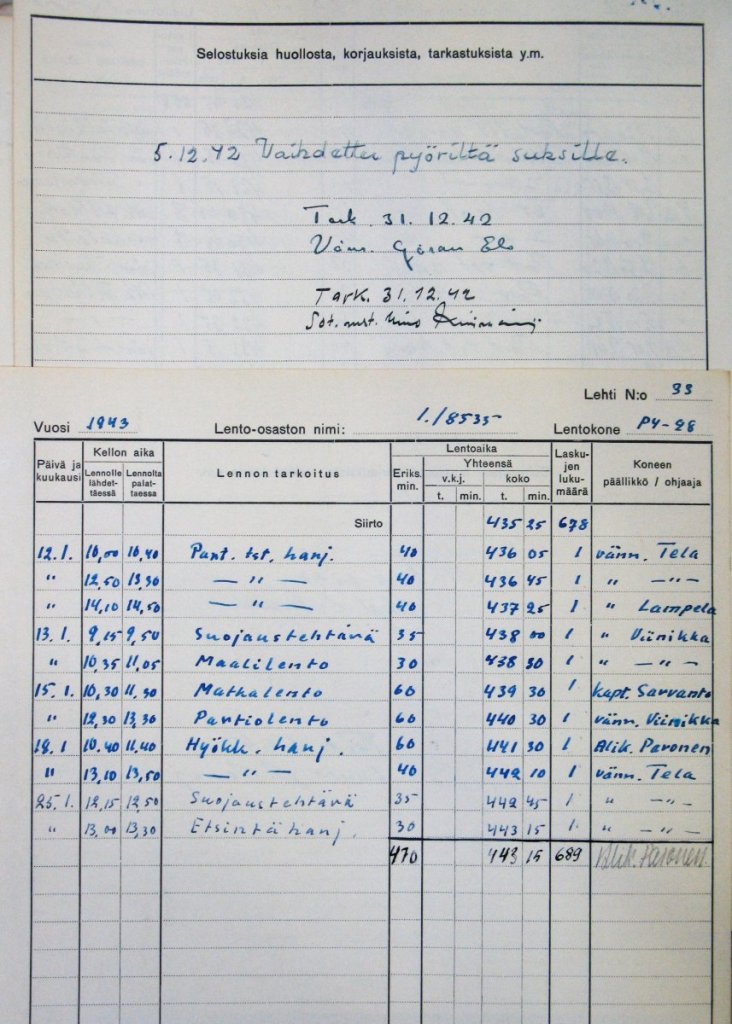 Selostuksia huollosta, korjauksista, tarkastuksista y.m.
5.12.42 Vaihdettu pyöriltä suksille.
Tark. 31.12.42
Vänr. Göran Elo
Tark. 31.12.42
Sot.mest.
Lehti N:o 33
Vuosi 1943 Lento-osaston nimi: 1./8535 Lentokone PY-28
Päivä ja kuukausi Kellon aika Lennolle lähdettäessä Lennolta palattaessa Lennon tarkoitus Lentoaika Eriks. min. Yhteensä v.k.j. t. min. koko t. min. Laskujen lukumäärä Koneen päällikkö / ohjaaja
Siirto 435 25 678
12.1. 10,00 10,40 Part. tst. harj. 40 436 05 1 vänr. Tela
" 12,50 13,30 — " — 40 436 45 1 " — " —
" 14,10 14,50 — " — 40 437 25 1 " Lampela
13.1. 9,15 9,50 Suojaustehtävä 35 438 00 1 " Viinikka
" 10,35 11,05 Maalilento 30 438 30 1 " — " —
15.1. 10,30 11,30 Matkalento 60 439 30 1 kapt. Sarvanto
" 12,30 13,30 Partiolento 60 440 30 1 vänr. Viinikka
18.1 10.40 11.40 Hyökk. harj. 60 441 30 1 Alik. Paronen
" 13,10 13,50 — " — 40 442 10 1 vänr. Tela
25.1. 12,15 12,50 Suojaustehtävä 35 442 45 1 " — " —
" 13,00 13,30 Etsintäharj. 30 443 15 1 " — " —
470 443 15 689 Alik. Paronen